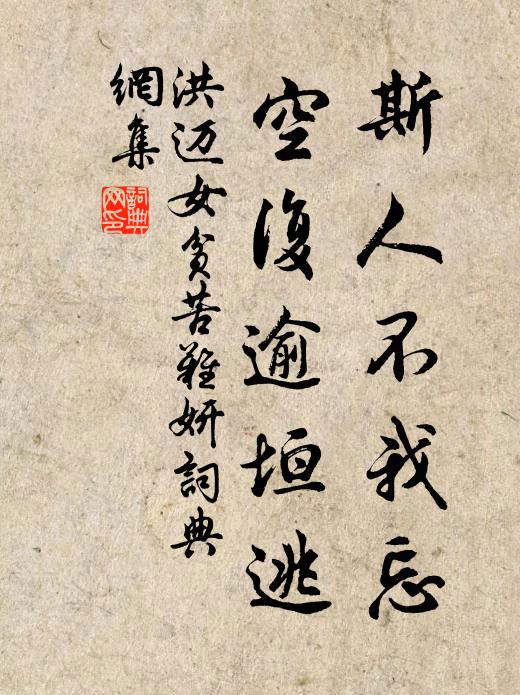 斯人不我忘
空復逾垣逃
洪迈女貧苦難妍詞典
網集
詞典
网印